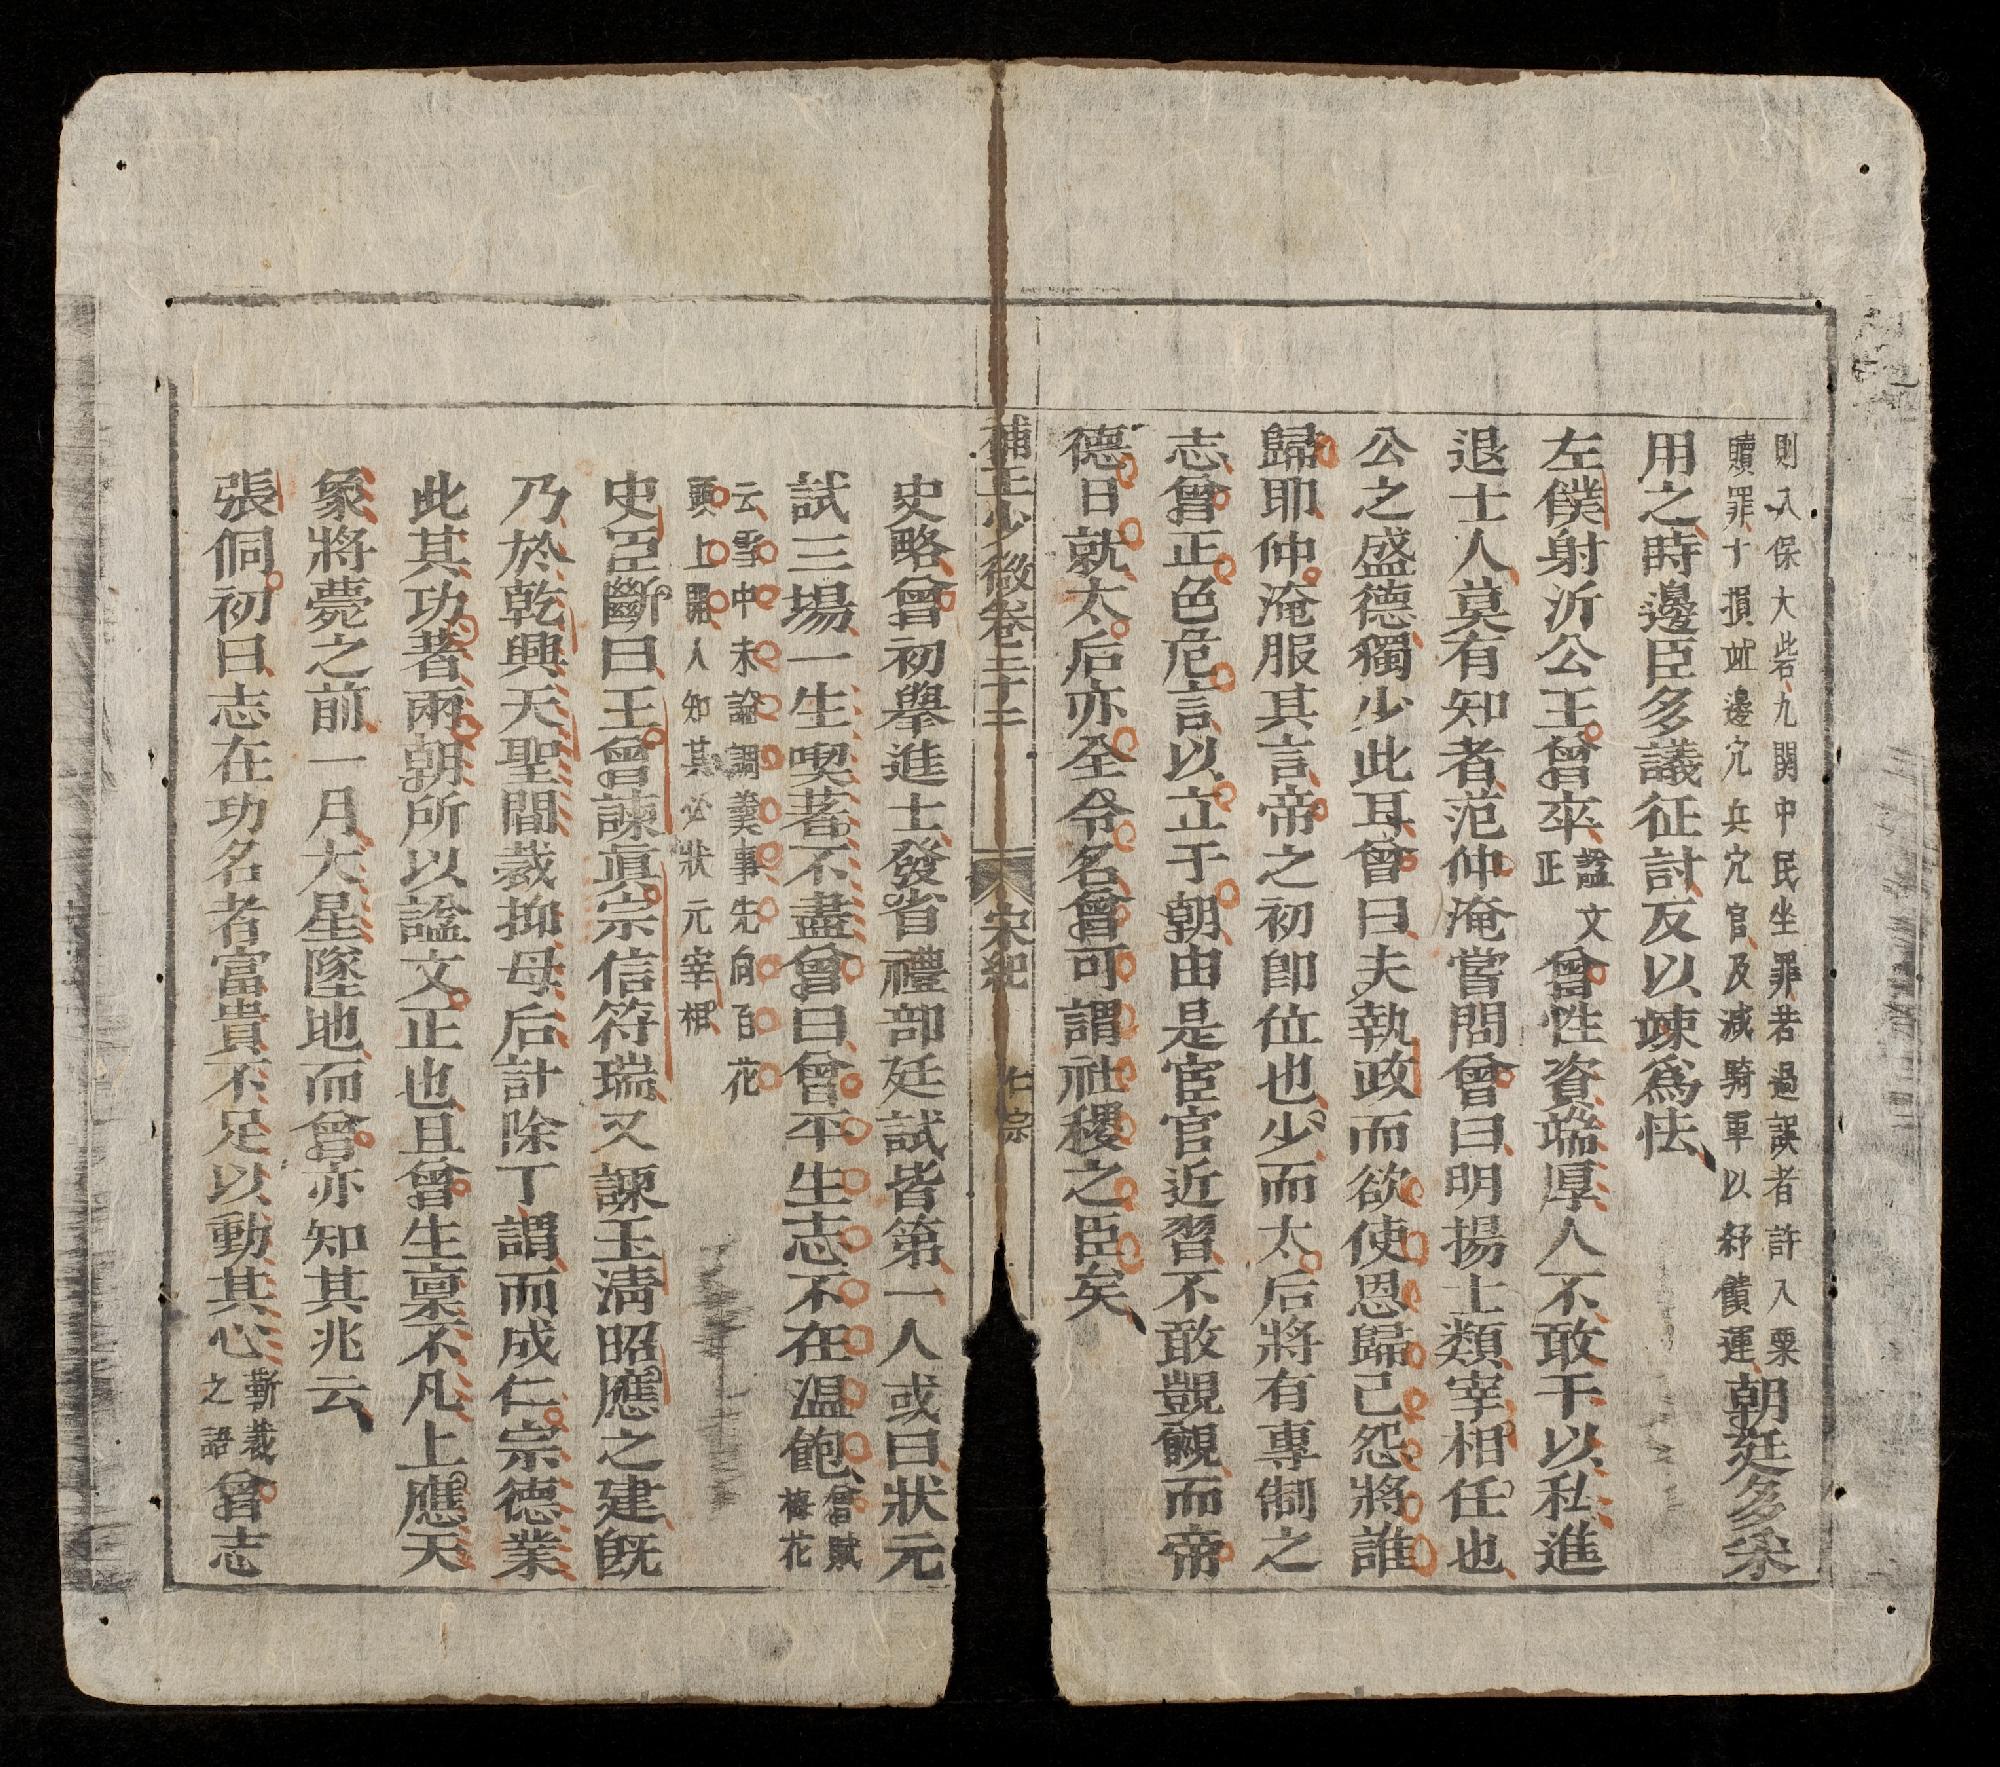 則入保大砦九關中民坐罪若過誤者許入粟
贖罪十損並邊冗兵冗官及减騎軍以紓饋運
朝廷多采
用之時邊臣多議征討反以竦爲怯
左僕射沂公王曾卒
謚文
正
曾性資端厚人不敢干以私進
退士人莫有知者范仲淹嘗問曾曰明揚士類宰相任也
公之盛德獨少此耳曾曰夫執政而欲使恩歸己怨將誰
歸耶仲淹服其言帝之初卽位也少而太后將有專制之
志曾正色危言以立于朝由是宦官近習不敢覬覦而帝
德日就太后亦全令名曾可謂社稷之臣矣
補正少微卷三十二
宋紀
仁宗
史略曾初舉進士發省禮部廷試皆第一人或曰狀元
試三場一生喫著不盡曾曰曾平生志不在温飽
曾賦
梅花
云雪中未論調羹事先向百花
頭上開人知其必狀元宰相
史臣斷曰王曾諫眞宗信符瑞又諫玉淸昭應之建旣
乃於乾興天聖間裁抑母后計除丁謂而成仁宗德業
此其功著兩朝所以謚文正也且曾生稟不凡上應天
象將薨之前一月大星墜地而曾亦知其兆云
張侗初曰志在功名者富貴不足以動其心
靳裁
之語
曾志